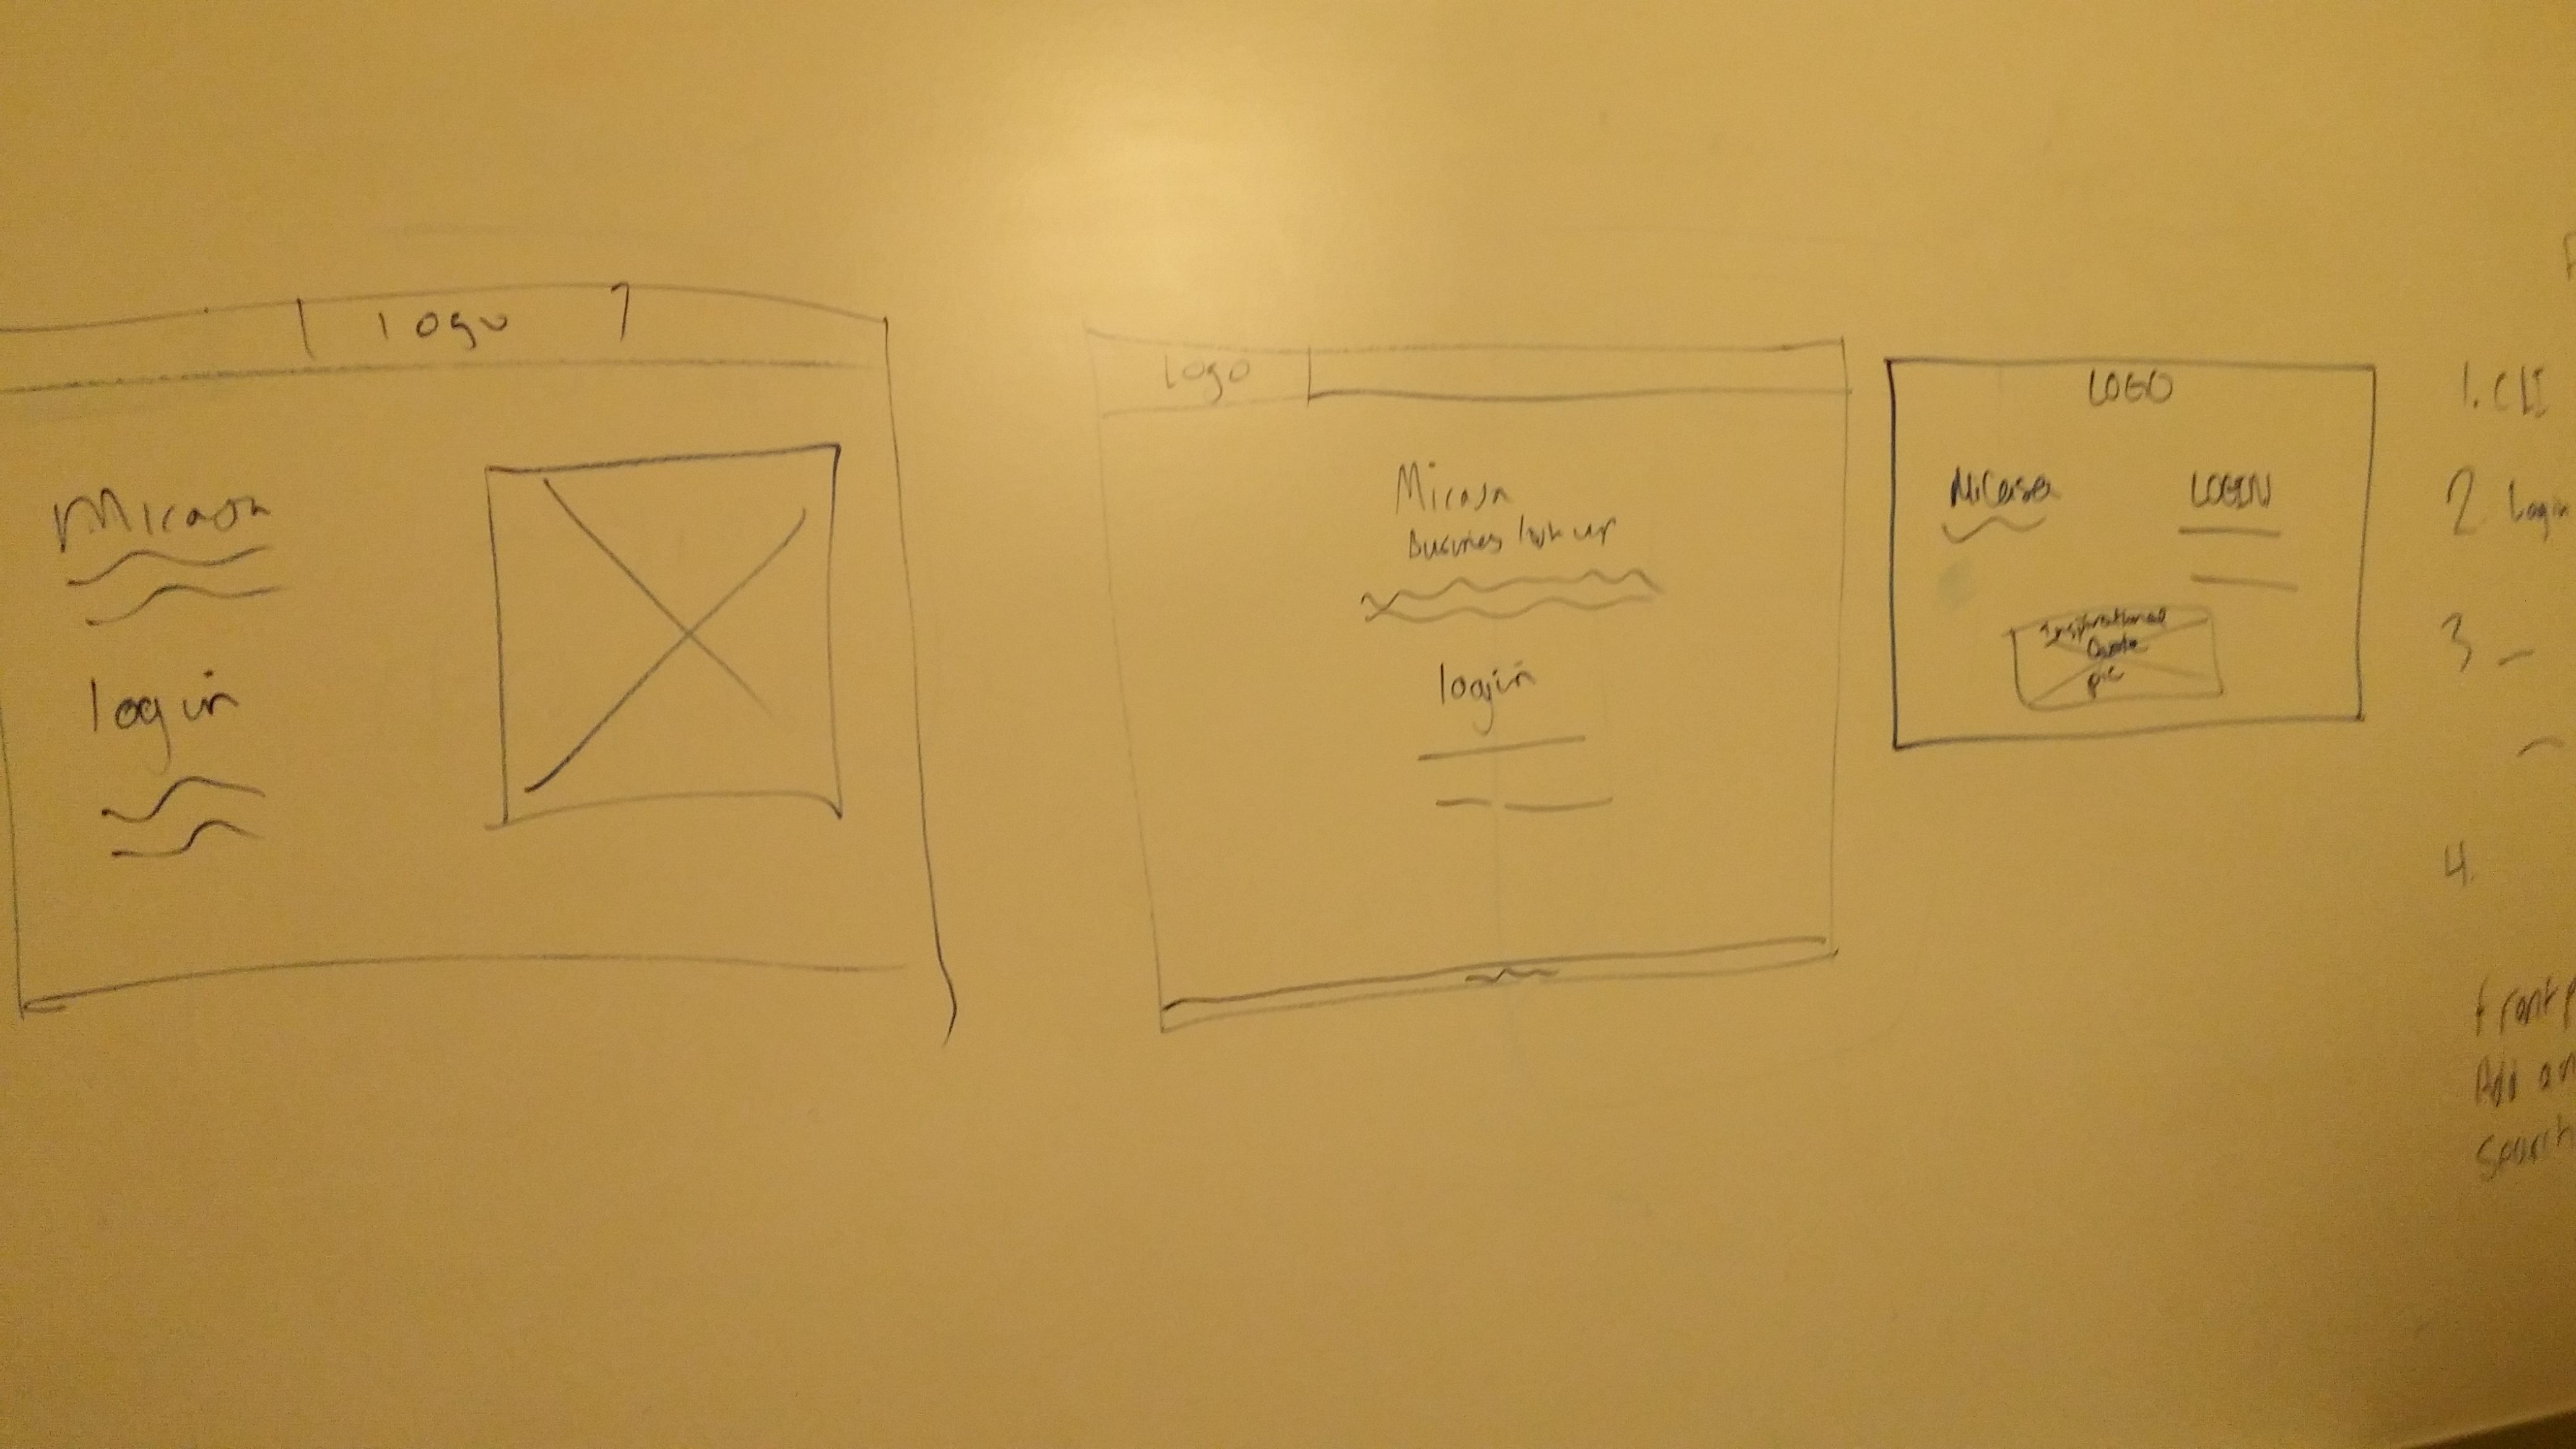 logo
Micasa
login
logo
Micasa
Business look up
login
LOGO
MiCasa
LOGIN
Inspirational
Quote
pic
1. CLI
2 Login
3
4.
front p
Add an
Search